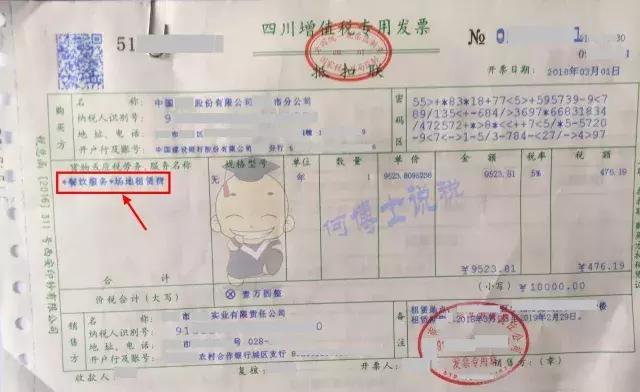 四川增值税专用发票
抵扣联
51
№ 0 1
开票日期：2018年03月01日
税总函〔2016〕311号西安印钞有限公司
购买方
名 称：中国 股份有限公司 市分公司
纳税人识别号：9
地址、电话： 市 区
开户行及账号：中国建设银行股份有限公司 分行
密码区
55>+*83*18+77<5>+595739-9<7
89/135<+-684/>3697*66831834
/472572+*>8*<<+7<5/*5-5720
-9<7<->1-5/3-784-<27/->4>97
货物或应税劳务、服务名称 规格型号 单位 数量 单价 金额 税率 税额
*餐饮服务*场地租赁费 无 年 1 9523.8095238 9523.81 5% 476.19
何博士说税
合 计 ￥9523.81 ￥476.19
价税合计（大写） ⊗壹万圆整 （小写）￥10000.00
销售方
名 称： 市 实业有限责任公司
纳税人识别号：91 0
地址、电话： 市 号 028-
开户行及账号： 农村合作银行城区支行
备注
租赁地
租赁 2018年3月 2019年2月29日。
91
发票专用章
收款人： 复核： 开票人： 销售方：（章）